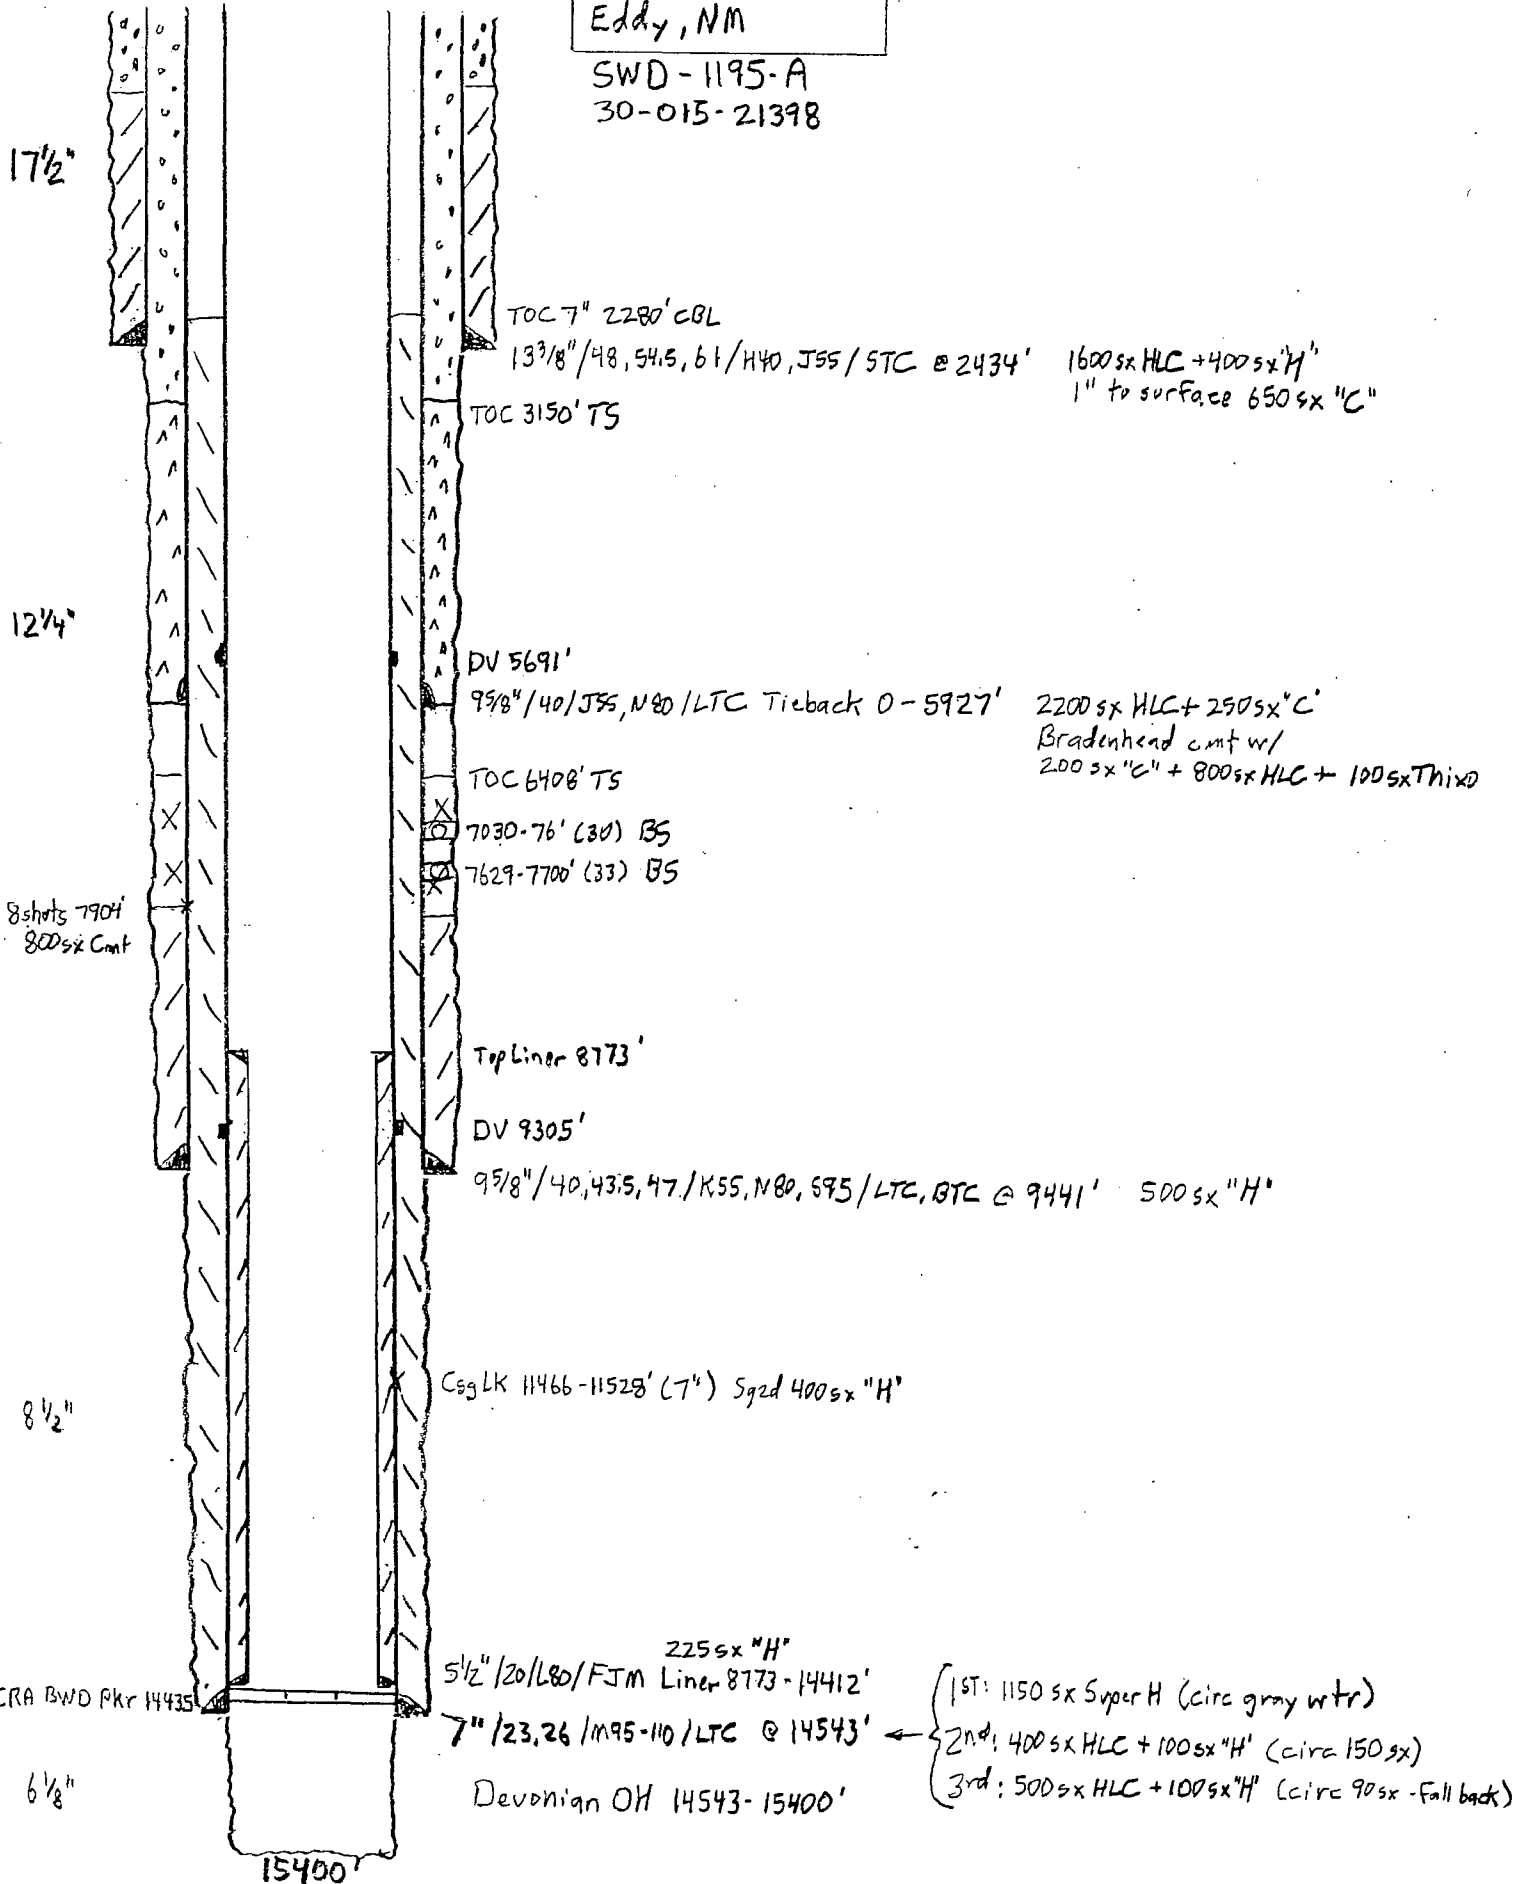 Eddy, NM
SWD-1195-A
30-015-21398
17 1/2"
TOC 7" 2280' CBL
13 3/8"/48, 54.5, 61/H40, J55/STC @ 2434' 1600 sx HLC + 400 sx "H"
1" to surface 650 sx "C"
TOC 3150' TS
12 1/4"
DV 5691'
9 5/8"/40/J55, N80/LTC Tieback 0-5927' 2200 sx HLC + 250 sx "C"
Bradenhead cmt w/
200 sx "C" + 800 sx HLC + 100 sx Thixo
TOC 6408' TS
7030-76' (30) BS
7629-7700' (33) BS
8 shots 7904'
800 sx Cmt
Top Liner 8773'
DV 9305'
9 5/8"/40, 43.5, 47/K55, N80, S95/LTC, BTC @ 9441' 500 sx "H"
Csg LK 11466-11528' (7") Sqzd 400 sx "H"
8 1/2"
225 sx "H"
5 1/2"/20/L80/FJM Liner 8773-14412'
CRA BWD Pkr 14435
7"/23, 26/M95-110/LTC @ 14543'
1ST: 1150 sx Super H (circ gray wtr)
2nd: 400 sx HLC + 100 sx "H" (circ 150 sx)
3rd: 500 sx HLC + 100 sx "H" (circ 90 sx - Fall back)
6 1/8"
Devonian OH 14543-15400'
15400'